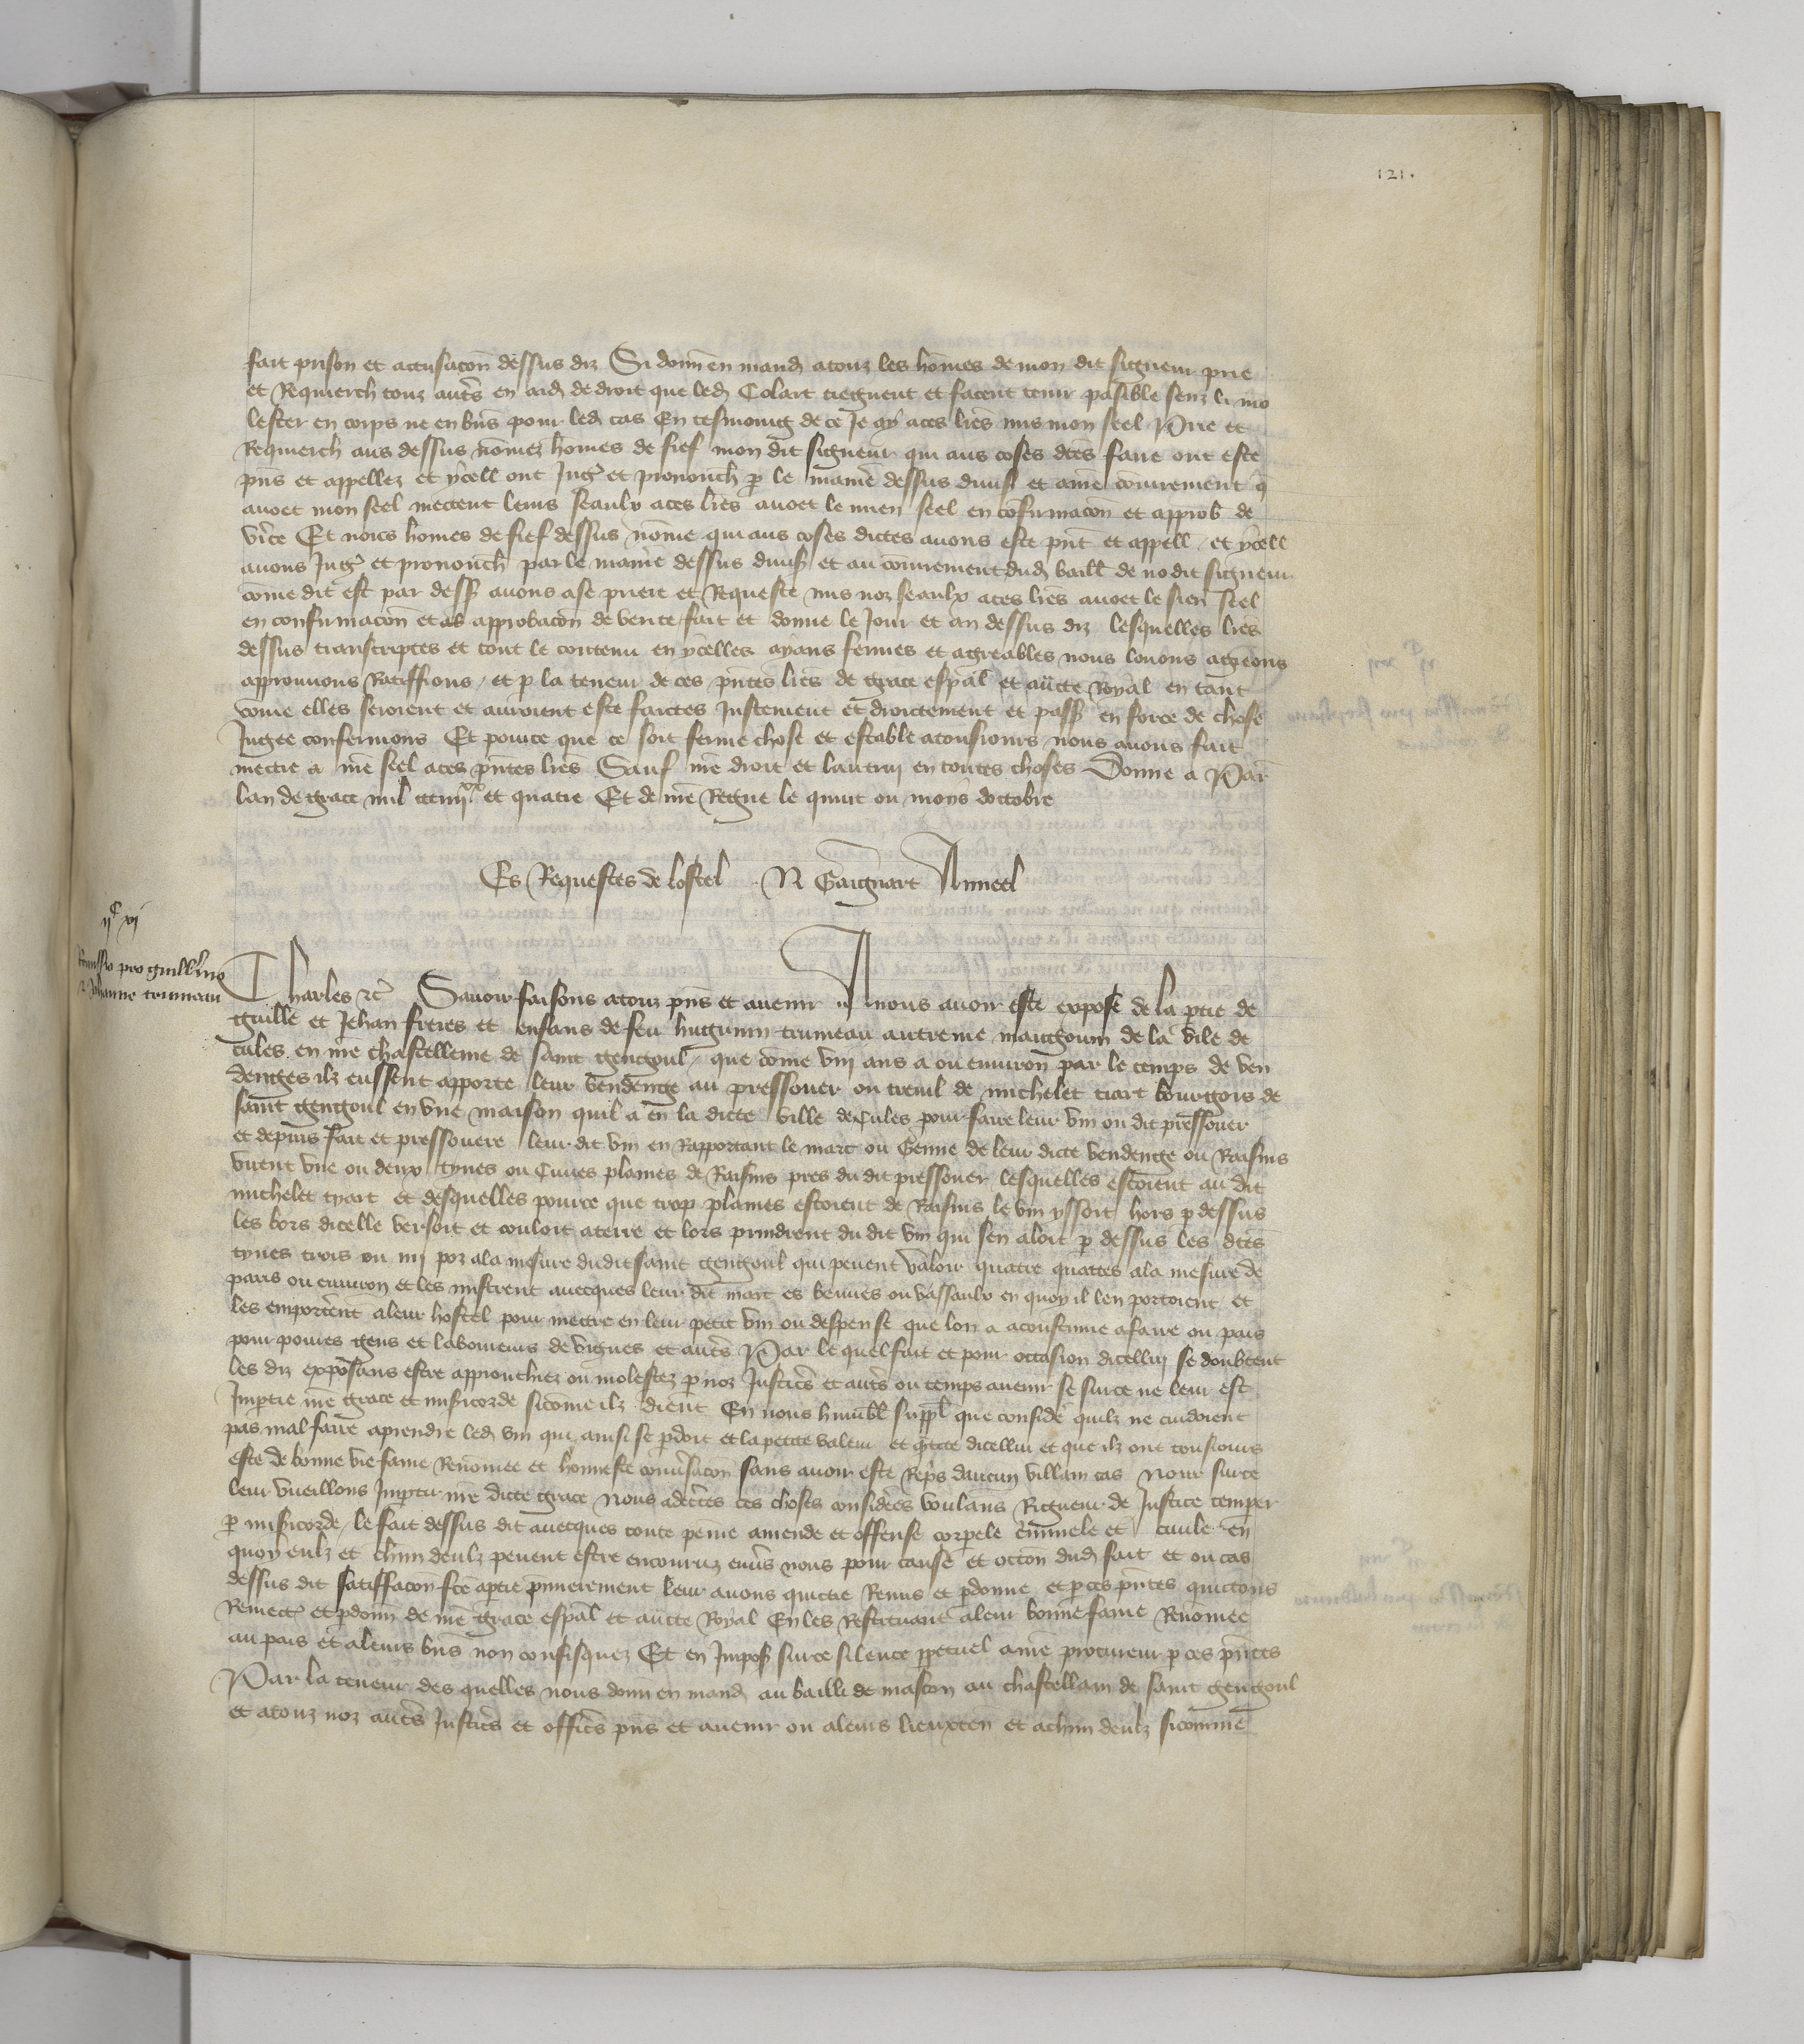 121.
fait prison et accusacon dessus diz Si donn en mand atouz les homes de mon dit signeur prie
et Requierch touz autres en aid de droit que led Colart tiegnent et facent tenir paisible senz li mo
lester en corps ne en bns pour led cas En tesmoing de ce Je ay a ces lres mis mon seel Prie et
Requierch aus dessus nomez homes de fief mon dit signeur qui aus coses dces faire ont este
pns et appellez et ycell ont Jug et prononch p le maniere dessus divis et a me conjurement q
avoec mon seel mectent leurs seaulx a ces lres avoec le mien seel en confirmacon et approb de
vte Et nous homes de fief dessus nome qui aus coses dictes avons este pnt et appell et ycell
avons Jug et prononch par le maniere dessus divis et au conjurement dud baill de no dit signeur
come dit est par dess avons a se priere et Requeste mis noz seaulx a ces lres avoec le sien seel
en confirmacon et approbacon de verite fait et donne le Jour et an dessus diz lesquelles lres
dessus transcriptes et tout le contenu en ycelles ayans fermes et agreables nous louons agreons
approuvons Ratiffions et p la teneur de ces pntes lres de grace espal et aucte Royal en tant
come elles seroient et auroient este faictes justement et droictement et pass en force de chose
Jugee confermons Et pource que ce soit ferme chose et estable atousiours nous avons fait
mectre a nre seel a ces pntes lres Sauf nre droit et lautruy en toutes choses Donne a Par
lan de grace mil ccc iiij xx et quatre Et de nre Regne le quint ou moys doctobre
Es Requestes de lostel N Gaignart Anneel
ij C xj
Remissio pro guillermo
et Johanne trumeau
Charles etc Savoir faisons atouz pns et avenir A nous avoir este expose de la ptie de
guille et Jehan freres et enfans de feu huguenin trumeau autreme maugoum de la vile de
Cules en nre chastellenie de saint gengoul que come viij ans a ou environ par le temps de ven
denges ilz eussent apporte leur vendenge au pressouer ou treuil de michelet tiart bourgois de
saint gengoul en une maison quil a en la dicte ville de Cules pour faire leur vin ou dit pressouer
et depuis fait et pressouere leur dit vin en Rapportant le marc ou Genne de leur dicte vendenge ou Raisins
virent une ou deux tynes ou Cuves plaines de Raisins pres du dit pressouer lesquelles estoient au dit
michelet tyart et desquelles pource que trop plaines estoient de Raisins le vin yssoit hors p dessus
les bors dicelle versoit et couloit aterre et lors prindrent du dit vin qui sen aloit p dessus les dces
tynes trois ou iiij poz ala mesure dudit saint gengoul qui pevent valoir quatre quartes ala mesure de
paris ou environ et les mistrent avecques leur dit marc es bennes ou vassaulx en quoy il len portoient et
les emporterent aleur hostel pour mettre en leur petit vin ou despense que lon a acoustume afaire ou pais
pour povres gens et laboureurs de vignes et autres Par le quel fait et pour occasion dicelluy se doubtent
les diz exposans estre approuchiez ou molestez p noz Justices et autres ou temps avenir se surce ne leur est
Imptie nre grace et misericorde sicome ilz dient En nous humbl suppl que conside quilz ne cuidoient
pas mal faire aprendre led vin qui ainsi se pdoit et la petite valeur et qtite dicellui et que ilz ont tousiours
este de bonne vie fame Renomee et honneste conversacon sans avoir este Repris daucun villain cas Nous surce
leur vueillons Impartir nre dicte grace Nous adecertes ces choses considerees voulans Rigueur de Justice temper
p misericorde le fait dessus dit avecques toute peine amende et offense corpele criminele et civile en
quoy eulz et chun deulz pevent estre encouruz envers nous pour cause et occon dud fait et ou cas
dessus dit satiffacon fce aptie pmierement leur avons quictie Remis et pdonne et p ces pntes quictons
Remect et pdonn de nre grace espal et aucte Royal En les Restituant aleur bonne fame Renomee
au pais et aleurs bns non confisquez Et en Impos surce silence ppetuel a nre procureur p ces pntes
Par la teneur des quelles nous donn en mand au bailli de mascon au chastellain de saint gengoul
et atouz noz autres Justices et offices pns et avenir ou aleurs lieuxten et achun deulz sicomme